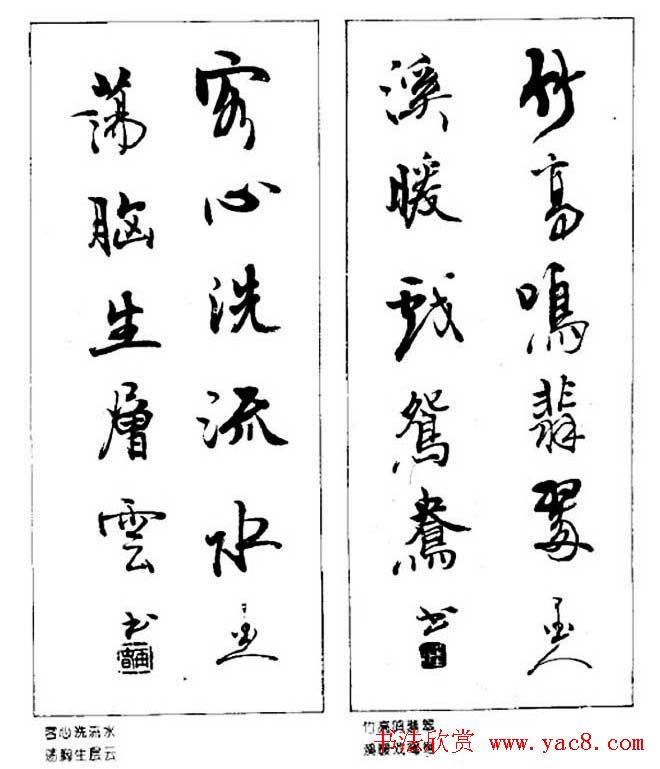 竹高鳴翡翠
溪暖戲鴛鴦书
客心洗流水
蕩胸生層雲书
客心洗流水
荡胸生层云
竹高鸣翡翠
溪暖戏鸳鸯
书法欣赏 www.yac8.com